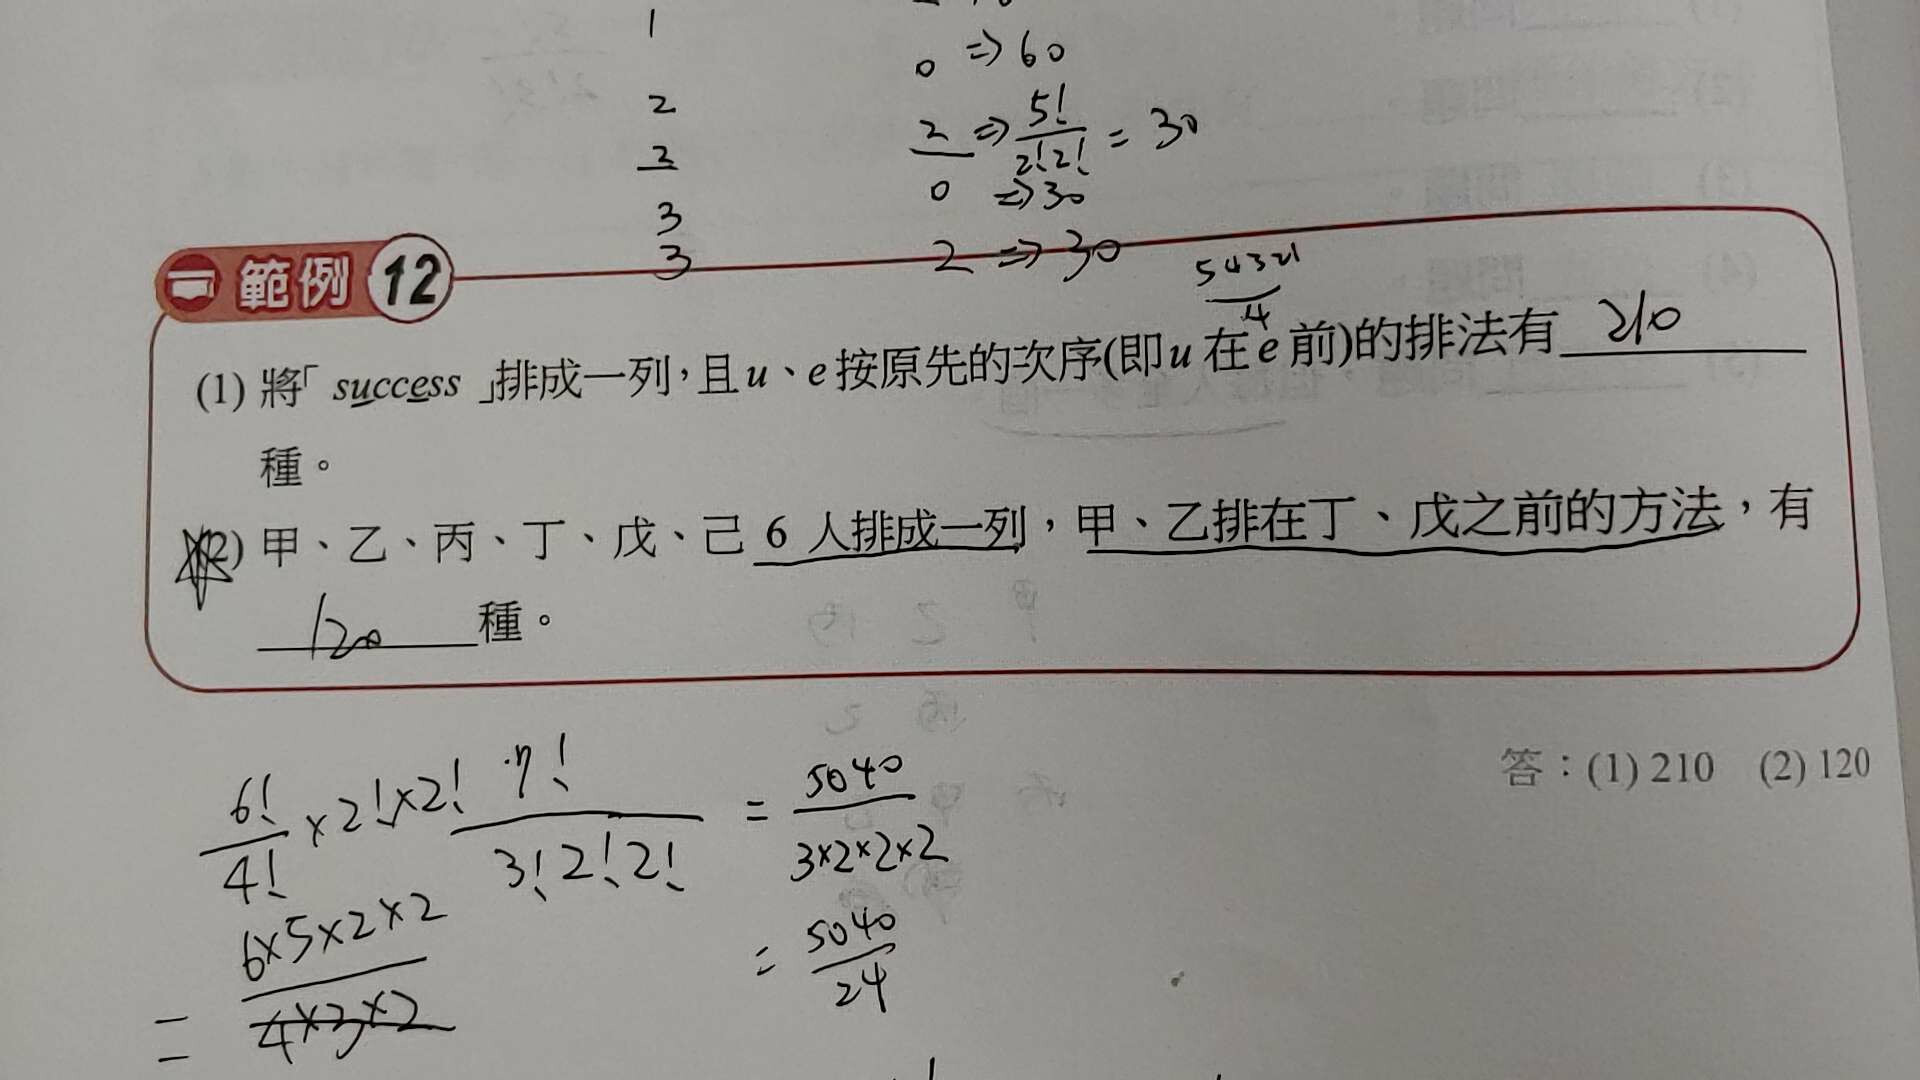 1
0 ⇒ 60
2
2 ⇒ 5!/2!2! = 30
2
0 ⇒ 30
3
3
2 ⇒ 30
範例 12
54321/4
(1) 將「success」排成一列,且u、e按原先的次序(即u在e前)的排法有 210
種。
(2) 甲、乙、丙、丁、戊、己 6 人排成一列,甲、乙排在丁、戊之前的方法,有
120 種。
答:(1) 210 (2) 120
6!/4! ×2!×2!
7!/3!2!2! = 5040/3×2×2×2
= 6×5×2×2/4×3×2
= 5040/24